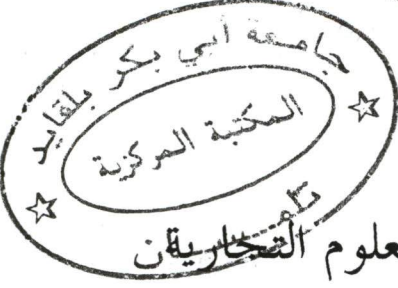 جامعة أبي بكر بلقايد
المكتبة المركزية
تلمسان
علوم التجارية